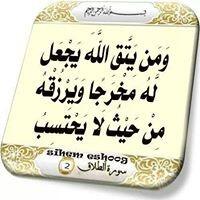 بسم الله الرحمن الرحيم
وَمَن يَتَّقِ اللَّهَ يَجْعَل
لَّهُ مَخْرَجًا وَيَرْزُقْهُ
مِنْ حَيْثُ لَا يَحْتَسِبُ
sihem eshoog
سورة الطلاق
2